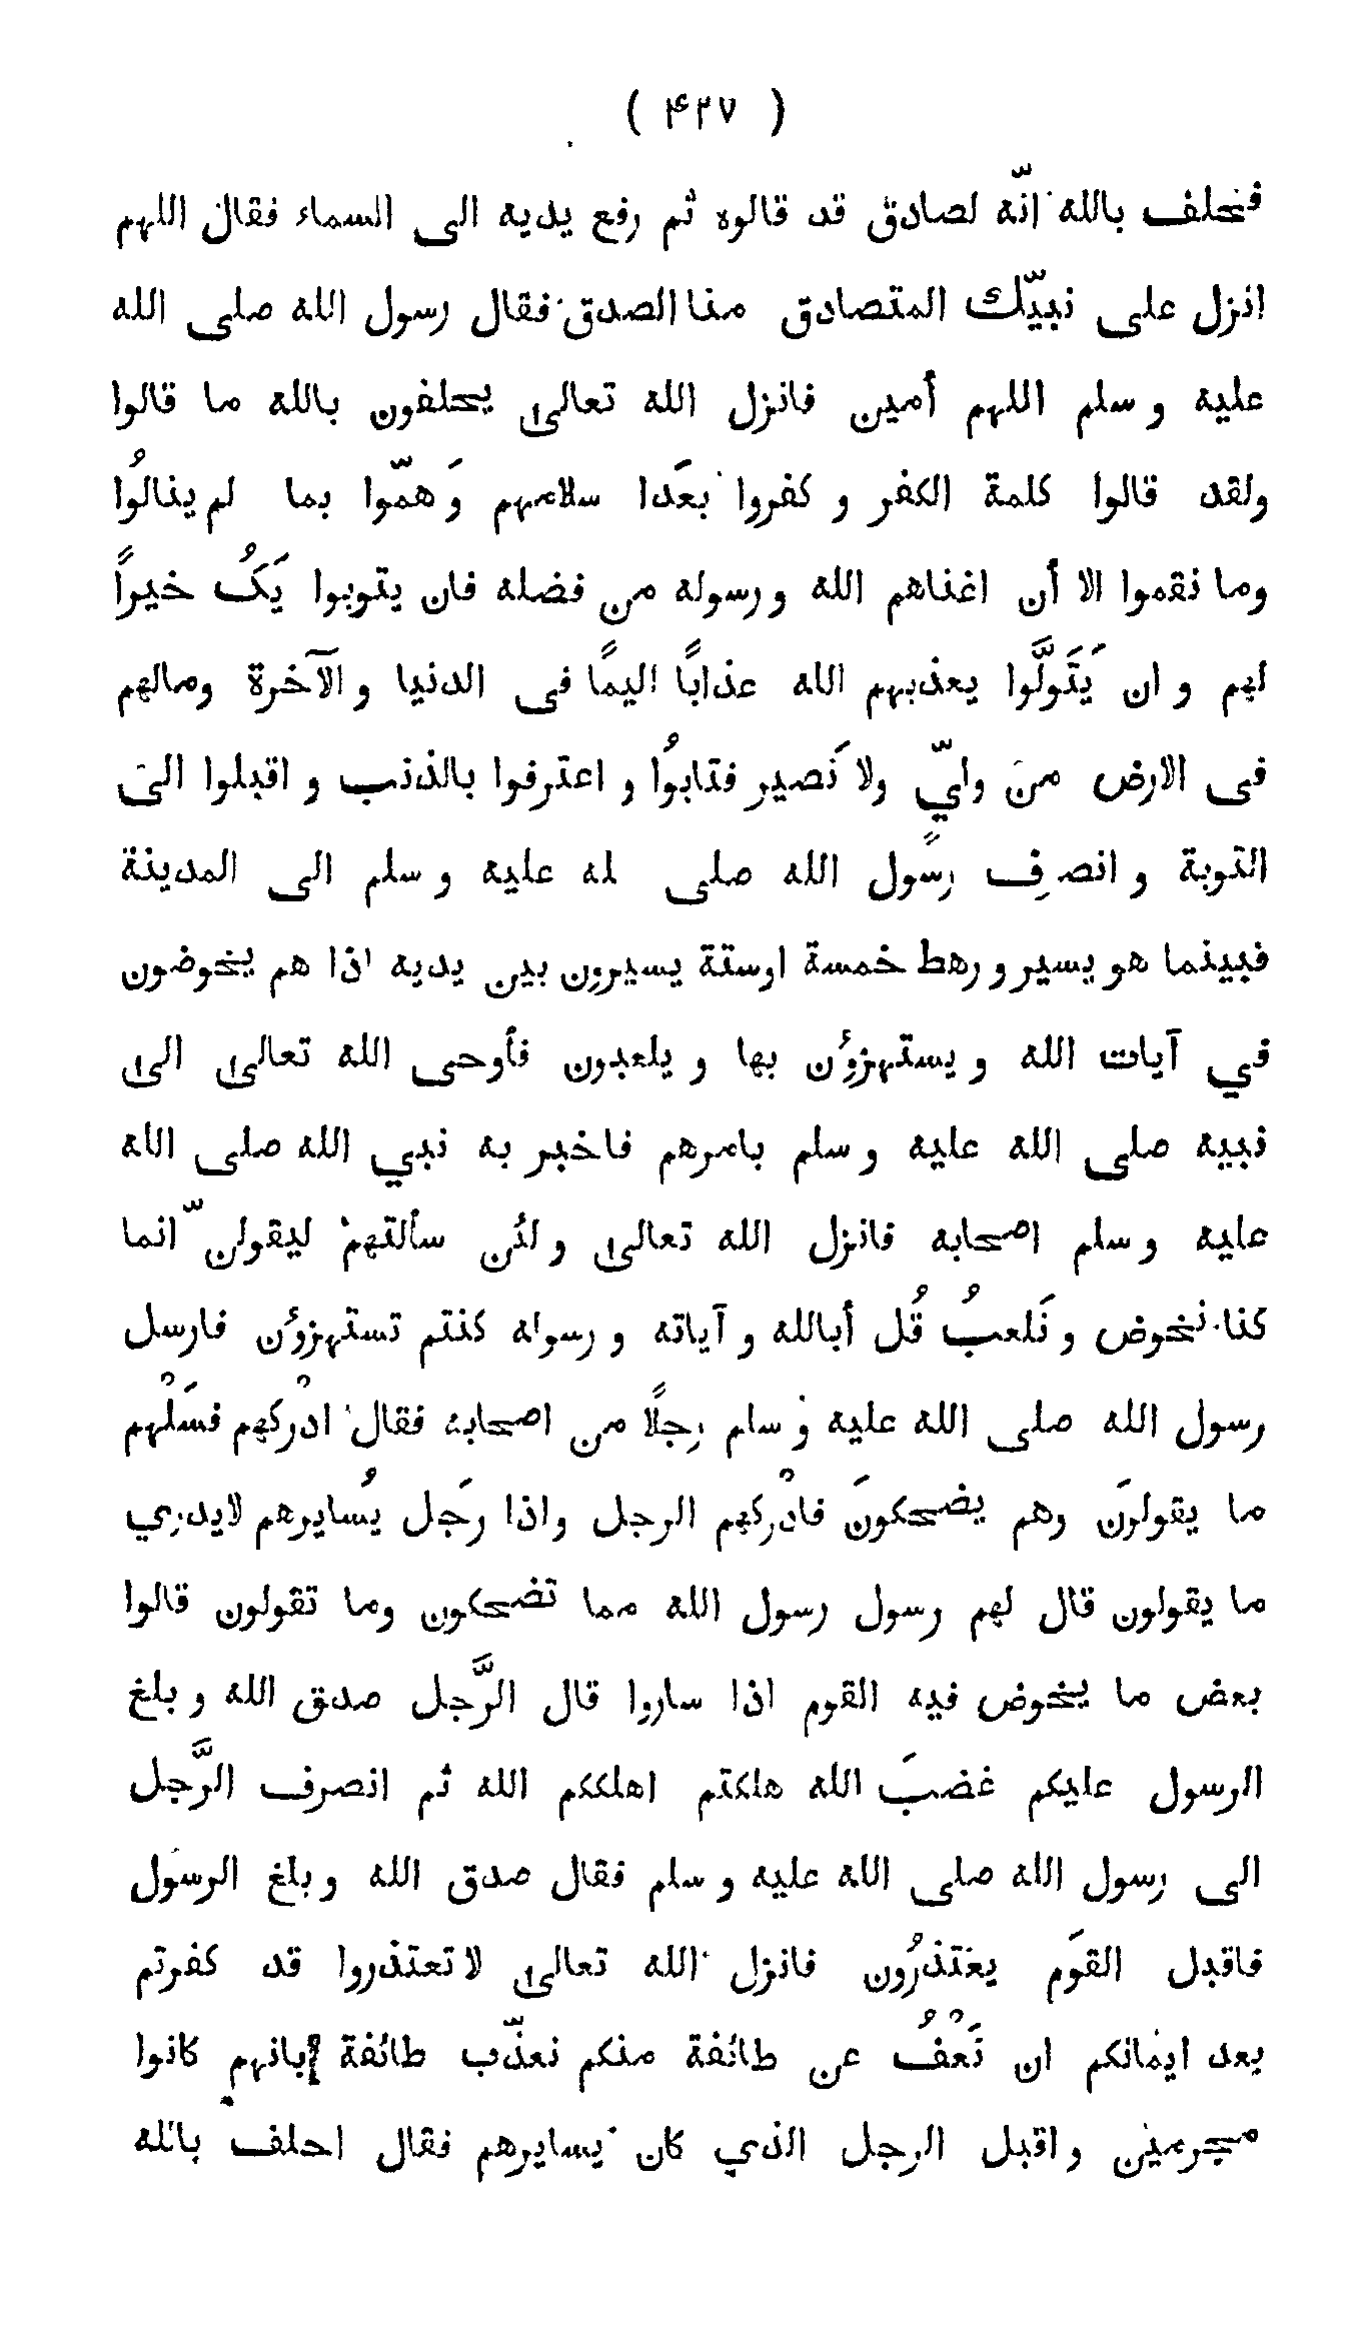 ( ۴۲۷ )
فحلف بالله انّه لصادق قد قالوه ثم رفع يديه الى السماء فقال اللهم
انزل على نبيّك المتصادق منا الصدق فقال رسول الله صلى الله
عليه و سلم اللهم أمين فانزل الله تعالىٰ يحلفون بالله ما قالوا
ولقد قالوا كلمة الكفر و كفروا بعَدا سلامهم وَ همّوا بما لم ينالُوا
وما نقموا الا أن اغناهم الله و رسوله من فضله فان يتوبوا يَكُ خيراً
لهم و ان يَتَولَّوا يعذبهم الله عذابًا اليمًا فى الدنيا و الآخرة ومالهم
فى الارض من وليّ ولا نَصير فتابوُا و اعترفوا بالذنب و اقبلوا الى
التوبة و انصرِف رسول الله صلى لله عليه و سلم الى المدينة
فبينما هو يسير و رهط خمسة اوستة يسيرون بين يديه اذا هم يخوضون
في آيات الله و يستهزؤن بها و يلعبون فأوحى الله تعالىٰ الىٰ
نبيه صلى الله عليه و سلم بامرهم فاخبر به نبي الله صلى الله
عليه و سلم اصحابه فانزل الله تعالىٰ و لئن سألتهم ليقولنّ انما
كنا نخوض و نَلعبُ قُل أبالله و آياته و رسوله كنتم تستهزؤن فارسل
رسول الله صلى الله عليه و سلم رجلًا من اصحابه فقال ادْركهم فسَلْهم
ما يقولونَ وهم يضحكونَ فادْركهم الرجل واذا رجَل يُسايرهم لايدري
ما يقولون قال لهم رسول رسول الله مما تضحكون وما تقولون قالوا
بعض ما يخوض فيه القوم اذا ساروا قال الرَّجل صدق الله و بلغ
الرسول عليكم غضبَ الله هلكتم اهلككم الله ثم انصرف الرَّجل
الى رسول الله صلى الله عليه و سلم فقال صدق الله و بلغ الرسول
فاقبل القوَم يعتذرُون فانزل الله تعالىٰ لا تعتذروا قد كفرتم
بعد ايمانكم ان نَعْفُ عن طائفة منكم نعذّب طائفة بانهم كانوا
مجرمين و اقبل الرجل الذي كان يسايرهم فقال احلف بالله